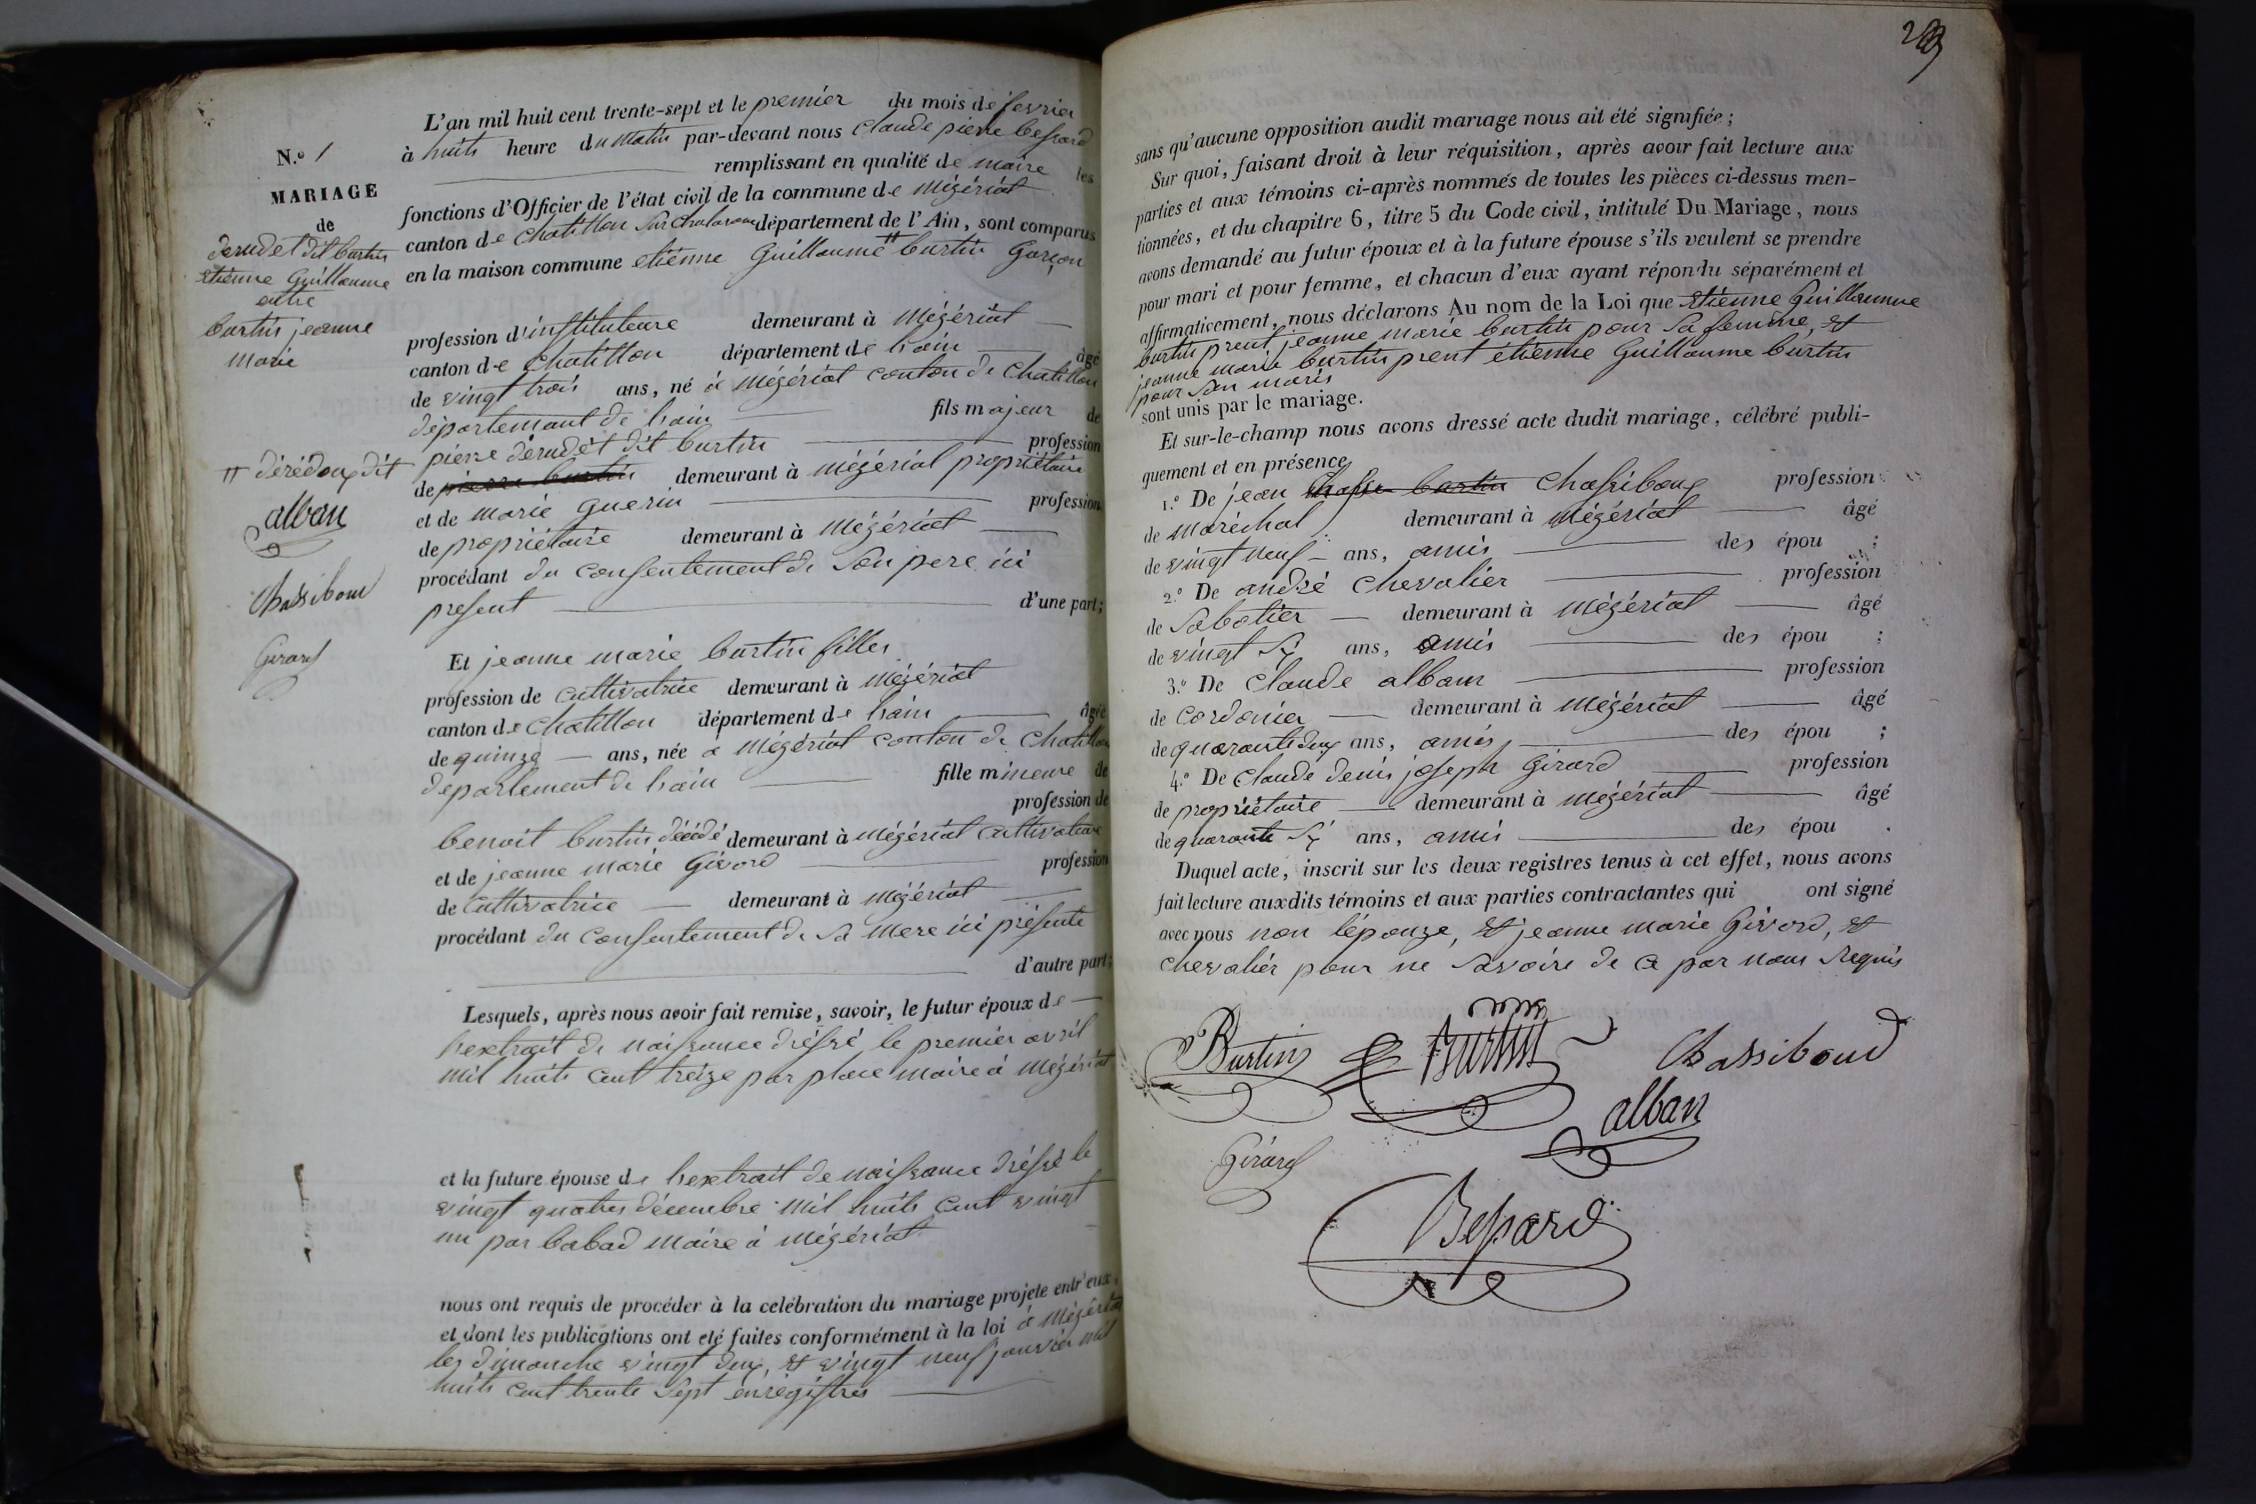 N.º 1
MARIAGE
de
derudet dit burtin
etienne Guillaume
entre
burtin jeanne
marie
dit
alban
Chassiboud
Girard
L'an mil huit cent trente-sept et le premier du mois de fevrier
à huits heure du matin par-devant nous claude pierre bessard
remplissant en qualité de maire les
fonctions d'Officier de l'état civil de la commune de mézériat
canton de chatillon sur chalaronne département de l'Ain, sont comparus
en la maison commune etienne Guillaume " burtin Garçon
profession d'instituteure demeurant à Mézériat
canton de chatillon département de hain âgé
de vingt trois ans, né à mézériat conton de chatillon
département de hain fils majeur de
pierre derudet dit burtin profession
de pierre burtin demeurant à mézériat propriétaire
et de marie guerin profession
de propriétaire demeurant à Mézériat
procédant du consentement de son pere ici
present d'une part;
Et jeanne marie burtin filles
profession de cultivatrice demeurant à mézériat
canton de chatillon département de hain âgée
de quinze ans, née à mézériat conton de chatillon
departement de hain fille mineure de
profession de
benoit burtin décédé demeurant à mézériat cultivateure
et de jeanne marie Givord profession
de cultivatrice demeurant à mézériat
procédant du consentement de sa mere ici présente
d'autre part;
Lesquels, après nous avoir fait remise, savoir, le futur époux de
hextrait de naissance dréssé le premier avril
mil huits cent treize par place maire à mézériat
et la future épouse de hextrait de naissance dréssé le
vingt quatres décembre mil huits cent vingt
un par babad maire à mézériat
nous ont requis de procéder à la celébration du mariage projeté entr'eux,
et dont les publications ont été faites conformément à la loi à mézériat
les dimanche vingt deux, et vingt neuf janvier mil
huits cent trente sept enregistres
sans qu'aucune opposition audit mariage nous ait été signifiée;
Sur quoi, faisant droit à leur réquisition, après avoir fait lecture aux
parties et aux témoins ci-après nommés de toutes les pièces ci-dessus men-
tionnées, et du chapitre 6, titre 5 du Code civil, intitulé Du Mariage, nous
avons demandé au futur époux et à la future épouse s'ils veulent se prendre
pour mari et pour femme, et chacun d'eux ayant répondu séparément et
affirmativement, nous déclarons Au nom de la Loi que etienne Guillaumme
burtin prent jeanne marie burtin pour sa femme, et
jeanne marie burtin prent étienne Guillaume burtin
pour son maris
sont unis par le mariage.
Et sur-le-champ nous avons dressé acte dudit mariage, célébré publi-
quement et en présence
1.º De jean burtin Chassiboug profession
de maréchal demeurant à mézériat âgé
de vingt neuf ans, amis des épou ;
2.º De andré chevalier profession
de sabotier demeurant à mézériat âgé
de vingt six ans, amis des épou ;
3.º De claude alban profession
de cordonier demeurant à mézériat âgé
de quarante deux ans, amis des épou ;
4.º De claude denis joseph Girard profession
de propriétaire demeurant à mézériat âgé
de quarante six ans, amis des épou .
Duquel acte, inscrit sur les deux registres tenus à cet effet, nous avons
fait lecture auxdits témoins et aux parties contractantes qui ont signé
avec nous non lépouze, et jeanne marie Givord, et
chevaliér pour ne savoire de ce par nous requis
Burtin Burtin Chassiboud
alban
Girard
Bessard